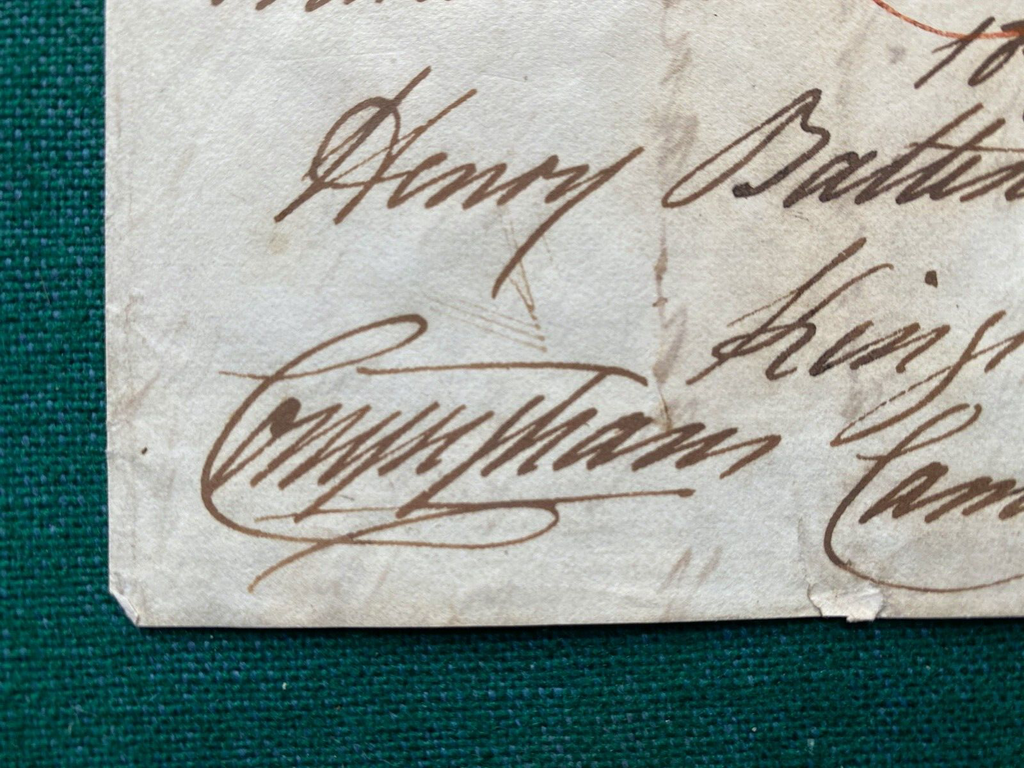 18
Henry Batten
King
Conyngham
Cam